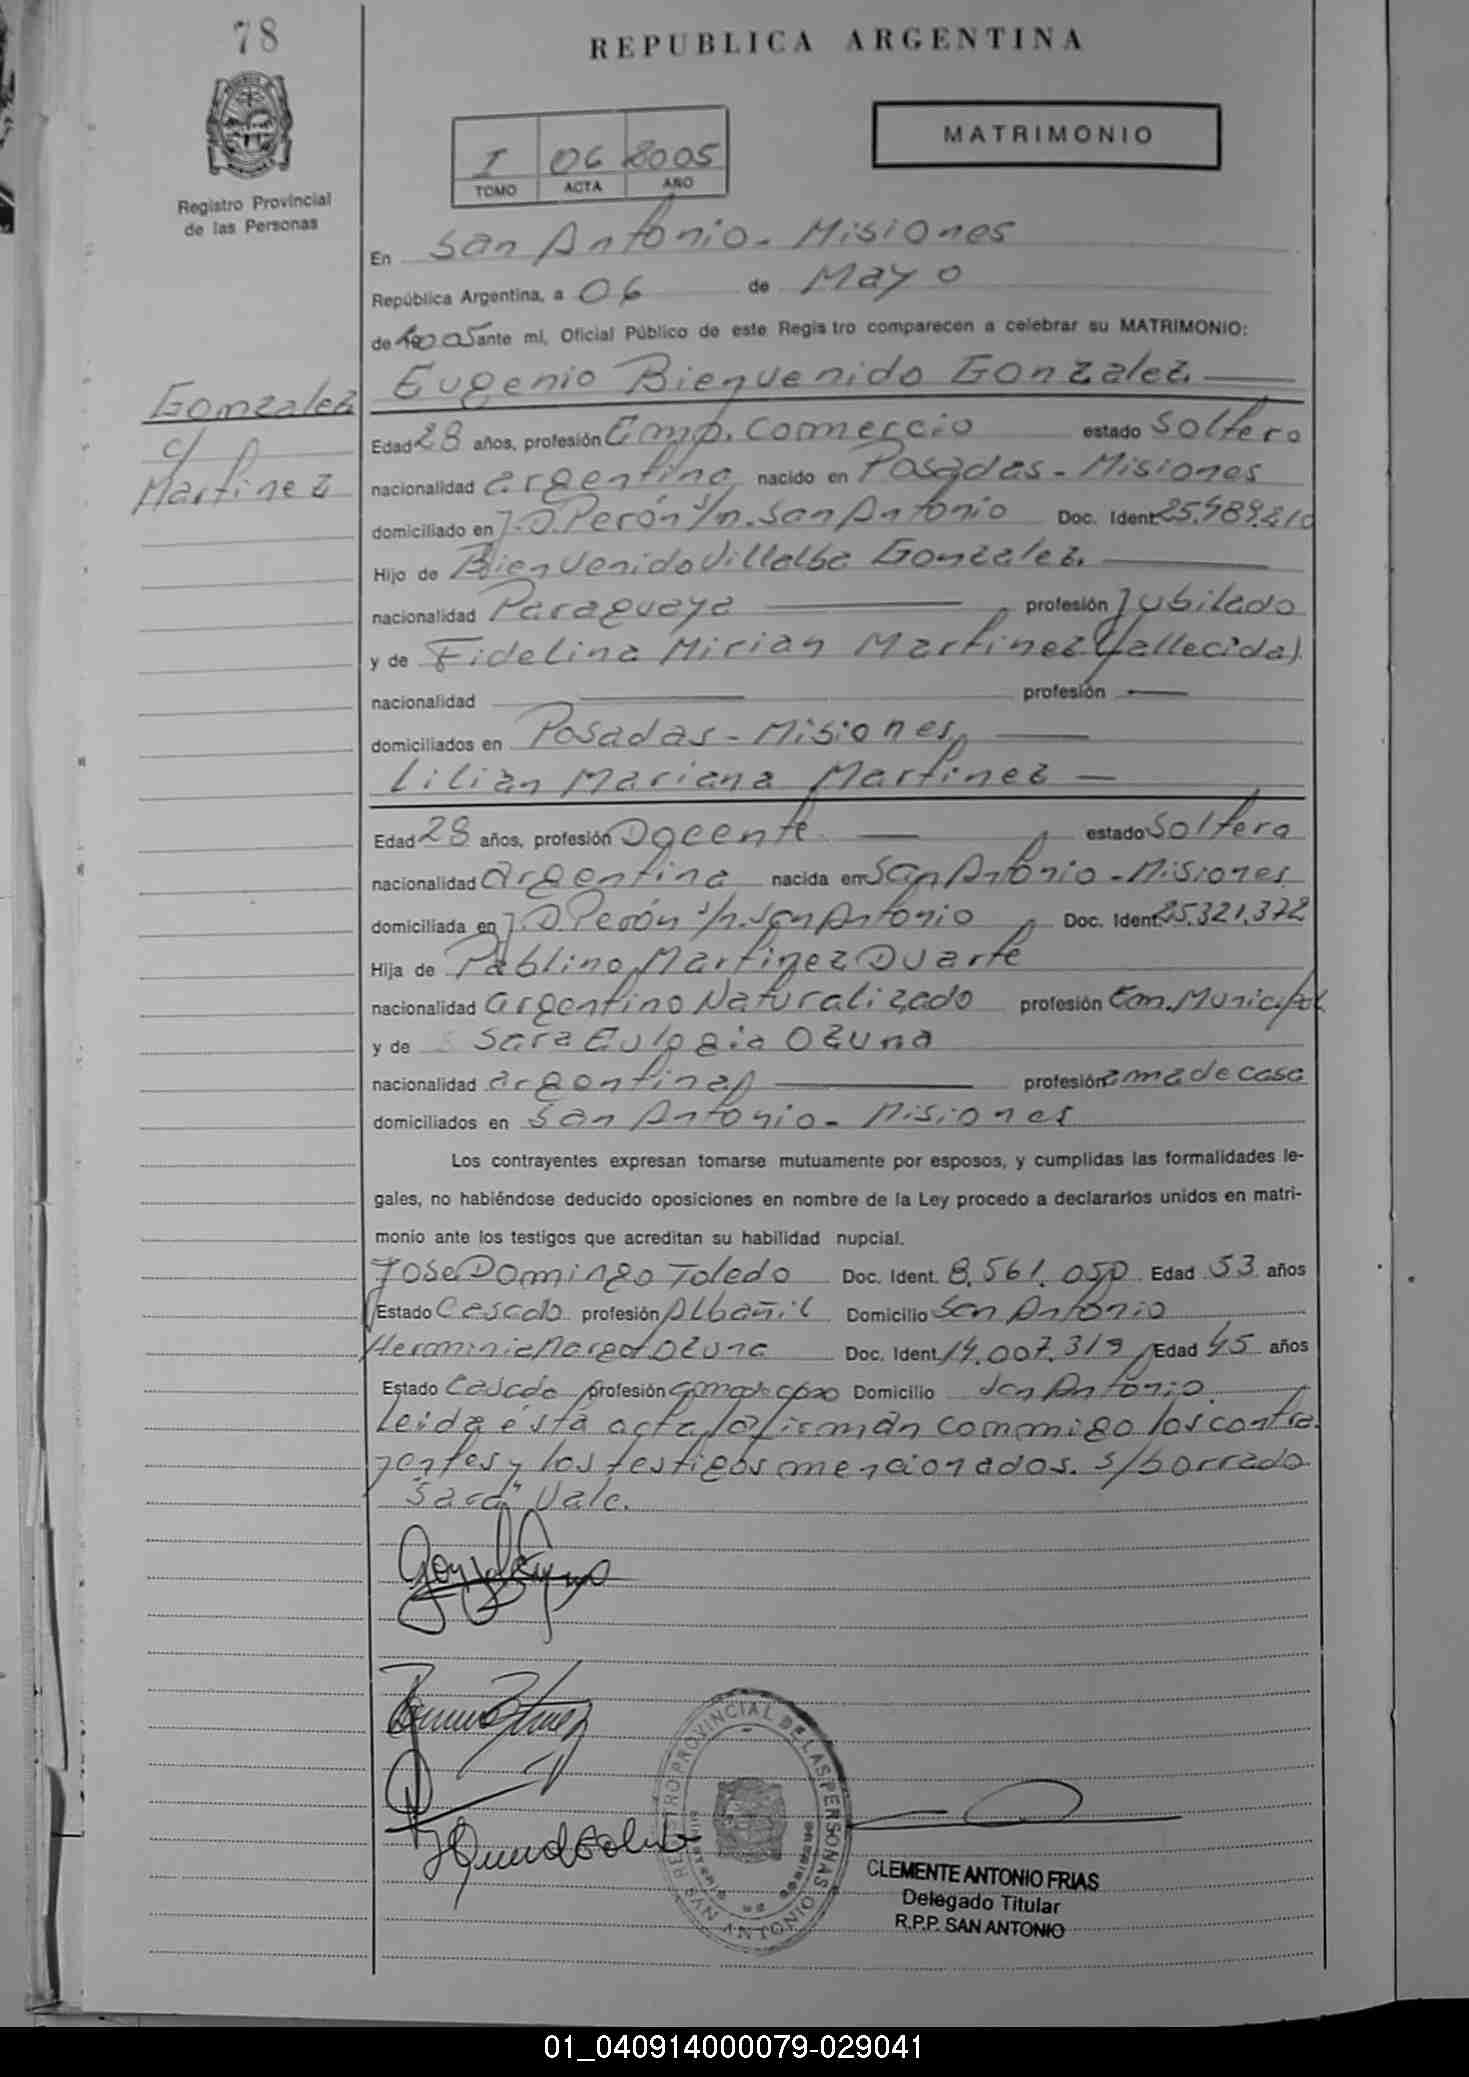 78
REPUBLICA ARGENTINA
MATRIMONIO
I 06 2005
TOMO ACTA AÑO
Registro Provincial
de las Personas
En San Antonio - Misiones
República Argentina, a 06 de Mayo
de 2005 ante mí, Oficial Público de este Registro comparecen a celebrar su MATRIMONIO:
Eugenio Bienvenido Gonzalez
Gonzalez
c/
Martinez
Edad 28 años, profesión Emp. Comercio estado Soltero
nacionalidad argentina nacido en Posadas - Misiones
domiciliado en J. D. Perón s/n. San Antonio Doc. Ident.
Hijo de Bienvenido Villalba Gonzalez
nacionalidad Paraguaya profesión Jubilado
y de Fidelina Mirian Martinez (fallecida)
nacionalidad profesión
domiciliados en Posadas - Misiones
Lilian Mariana Martinez
Edad 28 años, profesión Docente estado Soltera
nacionalidad argentina nacida en San Antonio - Misiones
domiciliada en J. D. Perón s/n. San Antonio Doc. Ident. 25.321.372
Hija de Pablino Martinez Duarte
nacionalidad argentino Naturalizado profesión Em. Municipal
y de Sara Eulogia Ozuna
nacionalidad argentina profesión ama de casa
domiciliados en San Antonio - Misiones
Los contrayentes expresan tomarse mutuamente por esposos, y cumplidas las formalidades le-
gales, no habiéndose deducido oposiciones en nombre de la Ley procedo a declararlos unidos en matri-
monio ante los testigos que acreditan su habilidad nupcial.
Jose Domingo Toledo Doc. Ident. 8.561.050 Edad 53 años
Estado Casado profesión Albañil Domicilio San Antonio
Herminia Margot Ozuna Doc. Ident. 14.007.319 Edad 45 años
Estado Casada profesión ama de casa Domicilio San Antonio
Leida ésta acta, la firman conmigo los contra
yentes y los testigos mencionados. s/borrado
"Sara" Vale.
REGISTRO PROVINCIAL DE LAS PERSONAS
SAN ANTONIO
CLEMENTE ANTONIO FRIAS
Delegado Titular
R.P.P. SAN ANTONIO
01_040914000079-029041